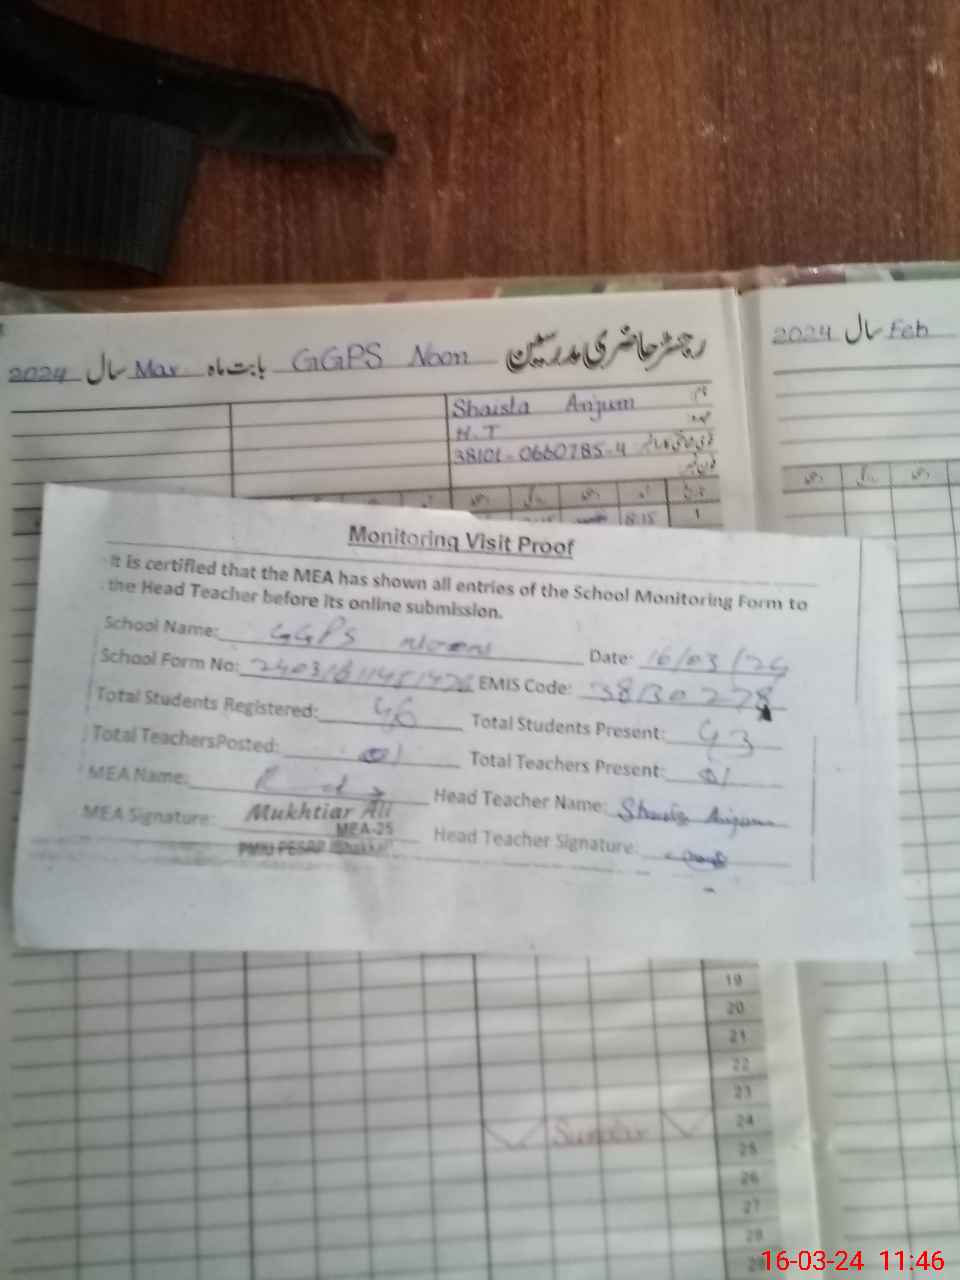 رجسٹر حاضری مدرسین GGPS Noon بابت ماہ Mar سال 2024
2024 سال Feb
Shaista Anjum نام
H.T عہدہ
38101-0660785-4
8:15 1
Monitoring Visit Proof
It is certified that the MEA has shown all entries of the School Monitoring Form to
the Head Teacher before its online submission.
School Name: GGPS NOON Date: 16/03/24
School Form No: EMIS Code: 38130278
Total Students Registered: 46 Total Students Present: 43
Total TeachersPosted: 01 Total Teachers Present: 01
MEA Name: Head Teacher Name: Shaista Anjum
MEA Signature: Mukhtiar Ali Head Teacher Signature:
MEA-25
PMIU PESRP
19
20
21
22
23
24 Sunday
25
26
27
28
29
16-03-24 11:46